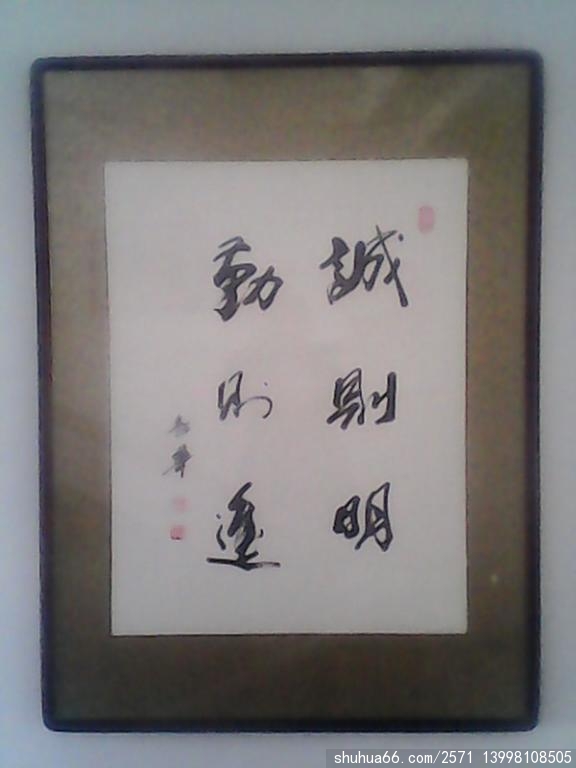 誠則明
勤則進
shuhua66.com/2571 13998108505